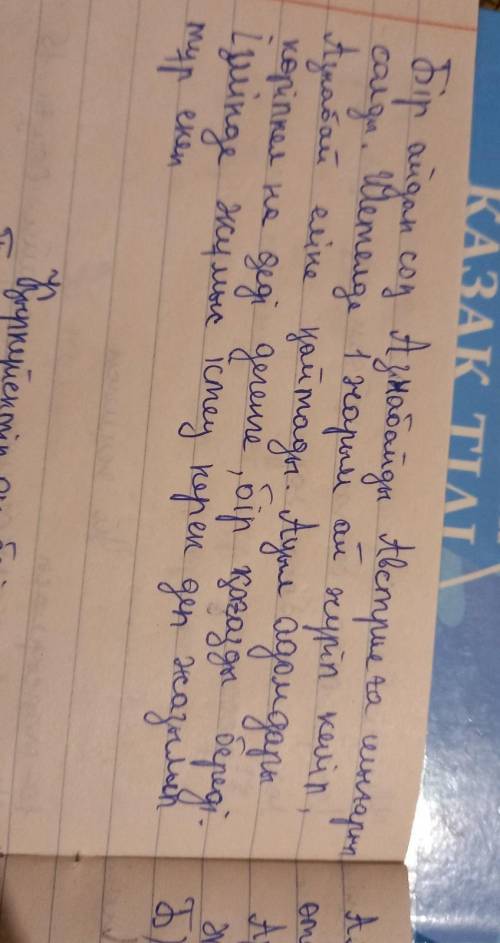 Бір айдан соң Азнабайды Австрияға шығарып
салды. Шетелде 1 жарым ай жүріп келіп,
Азнабай еліне қайтады. Ауыл адамдары
көріпкел не деді дегенге, бір қағазды береді.
Ішінде жұмыс істеу керек деп жазылып
тұр екен
ҚАЗАҚ ТІЛІ